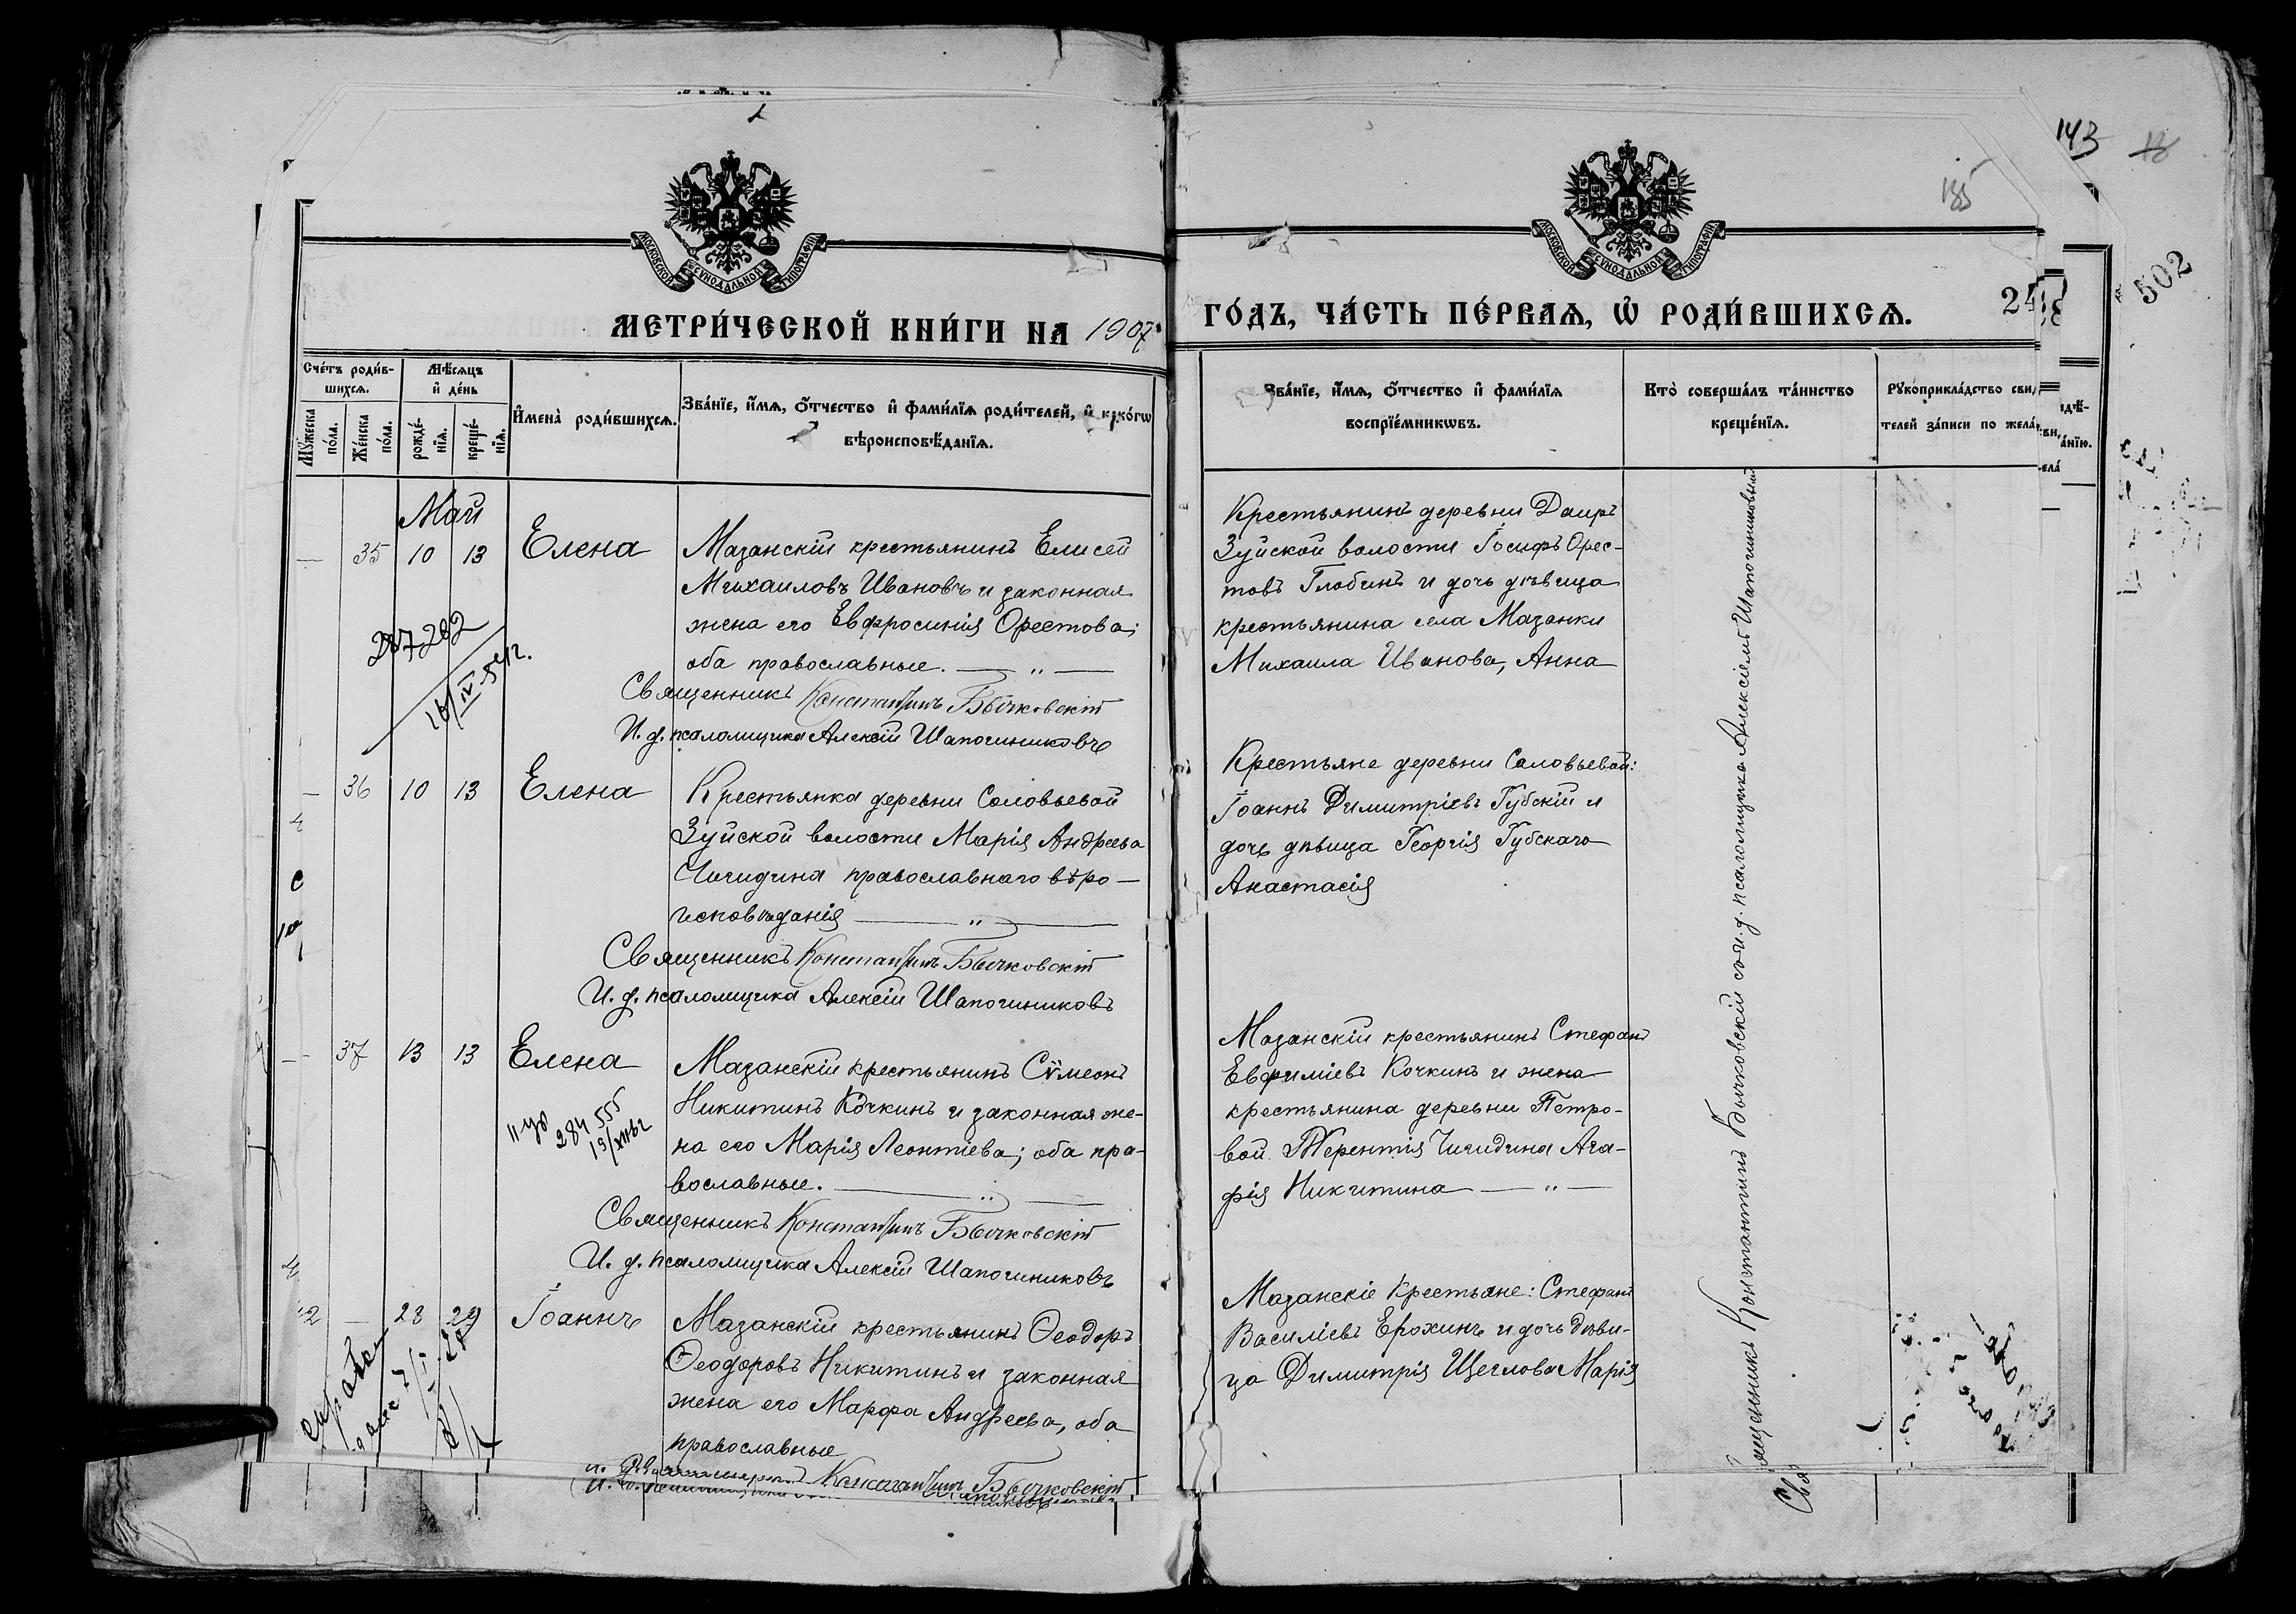 143
135
МОСКОВСКОЙ СѴНОДАЛЬНОЙ ТИПОГРАФІИ
МОСКОВСКОЙ СѴНОДАЛЬНОЙ ТИПОГРАФІИ
502
МЕТРИ́ЧЕСКОЙ КНИ́ГИ НА 1907
ГО́ДЪ, ЧА́СТЬ ПЕ́РВАѦ, Ѡ҆ РОДИ́ВШИХСѦ.
24
Сче́тъ роди́в-
шихсѧ.
Мꙋ́жеска по́ла.
Же́нска по́ла.
Мѣ́сѧцъ
и҆ де́нь
рожде́-
нїѧ.
креще́-
нїѧ.
И҆мена̀ роди́вшихсѧ.
Зва́нїе, и҆́мѧ, ѻ҆́тчество и҆ фами́лїѧ роди́телей, и҆ како́гѡ
вѣроисповѣ́данїѧ.
Зва́нїе, и҆́мѧ, ѻ҆́тчество и҆ фами́лїѧ
воспрїе́мникѡвъ.
Кто̀ соверша́лъ та́инство
креще́нїѧ.
Рꙋкоприкла́дство сви
телей за́писи по жела́
Май
— 35 10 13 Елена
Мазанскій крестьянинъ Елисей
Михаиловъ Ивановъ и законная
жена его Евфросинія Орестова;
оба православные. — „ —
Священникъ Константинъ Бычковскій
И. д. псаломщика Алексій Шапочниковъ
Крестьянинъ деревни Даиръ
Зуйской волости Іосифъ Орес-
товъ Глобинъ и дочь дѣвица
крестьянина села Мазанки
Михаила Иванова, Анна
— 36 10 13 Елена
Крестьянка деревни Соловьевой
Зуйской волости Марія Андреева
Чигидина православнаго вѣро—
исповѣданія — „ —
Священникъ Константинъ Бычковскій
И. д. псаломщика Алексій Шапочниковъ
Крестьяне деревни Соловьевой:
Іоаннъ Димитріевъ Губскій и
дочь дѣвица Георгія Губскаго
Анастасія
— 37 13 13 Елена
284 555
Мазанскій крестьянинъ Сѵмеонъ
Никитинъ Кочкинъ и законная же-
на его Марія Леонтіева; оба пра-
вославные. — „ —
Священникъ Константинъ Бычковскій
И. д. псаломщика Алексій Шапочниковъ
Мазанскій крестьянинъ Стефанъ
Евфиміевъ Кочкинъ и жена
крестьянина деревни Петро-
вой Терентія Чигидина Ага-
фія Никитина — „ —
— 28 29 Іоаннъ
Мазанскій крестьянинъ Ѳеодоръ
Ѳеодоровъ Никитинъ и законная
жена его Марфа Андреева, оба
православные
Константинъ Бычковскій
Мазанскіе крестьяне: Стефанъ
Василіевъ Ерохинъ и дочь дѣви-
ца Димитрія Щеглова Марія
Священникъ Константинъ Бычковскій съ и. д. псаломщика Алексіемъ Шапочниковымъ